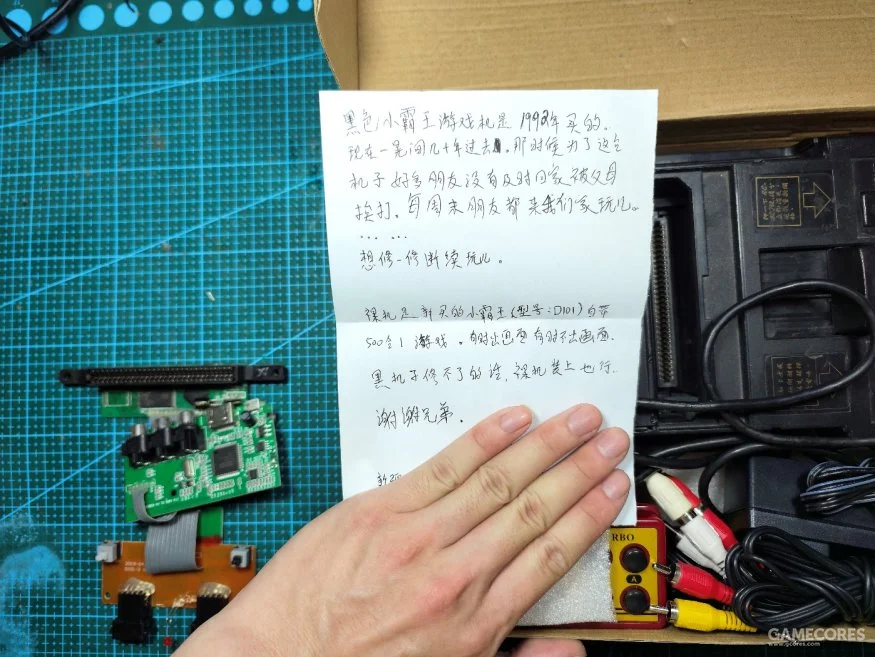 黑色小霸王游戏机是1992年买的。
现在一晃间几十年过去。那时候为了这台
机子好多朋友没有及时回家被父母
挨打。每周末朋友都来我们家玩儿。
… …
想修一修断续玩儿。
裸机是新买的小霸王(型号:D101)自带
500合1游戏。有时出画面有时不出画面.
黑机子修不了的话,裸机装上也行.
谢谢兄弟.
新疆
RBO
A
GAMECORES
www.gcores.com